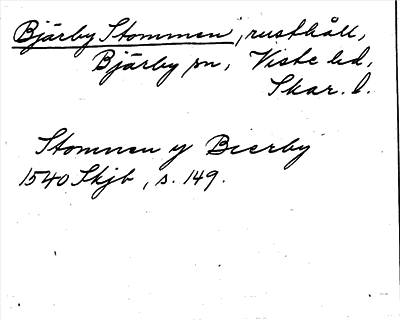 Bjärby Stommen, rusthåll,
Bjärby sn, Viste hd,
Skar. l.
Stomnen y Bierby
1540 Skjb, s. 149.